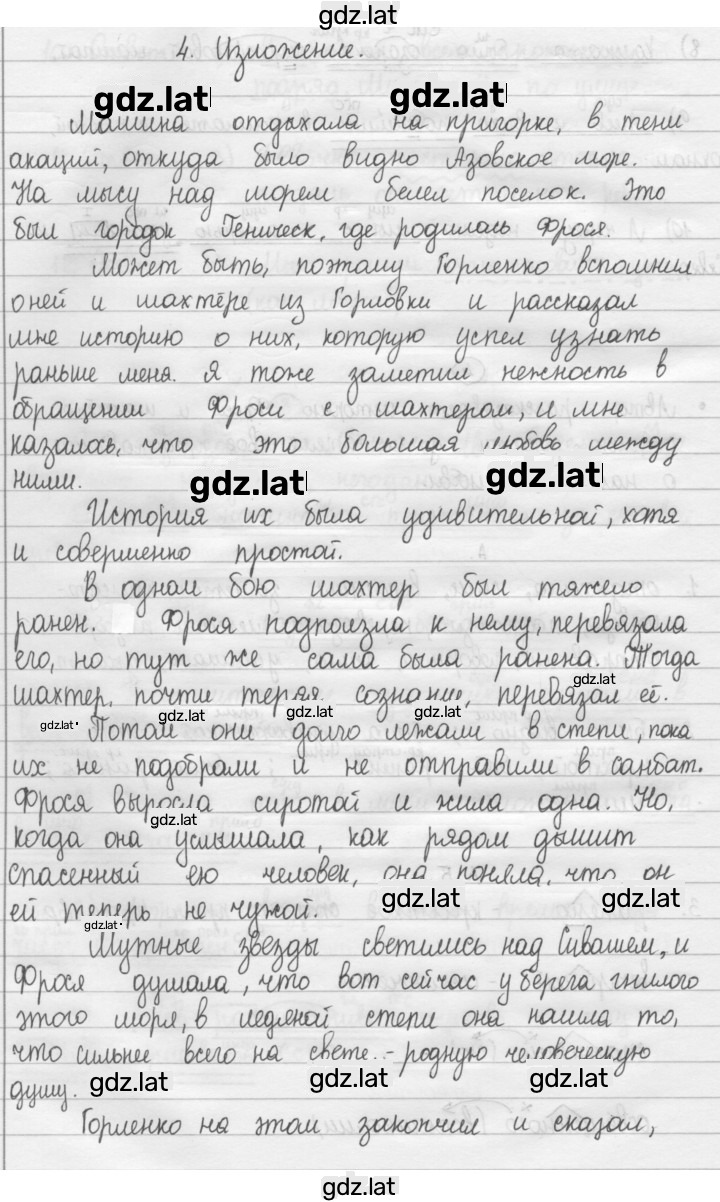 gdz.lat
4. Изложение.
gdz.lat gdz.lat
Машина отдыхала на пригорке, в тени
акаций, откуда было видно Азовское море.
На мысу над морем белел поселок. Это
был городок Геническ, где родилась Фрося.
Может быть, поэтому Горленко вспомнил
о ней и шахтёре из Горловки и рассказал
мне историю о них, которую успел узнать
раньше меня. Я тоже заметил нежность в
обращении Фроси с шахтером, и мне
казалось, что это большая любовь между
ними.
gdz.lat gdz.lat
История их была удивительной, хотя
и совершенно простой.
В одном бою шахтер был тяжело
ранен. Фрося подползла к нему, перевязала
его, но тут же сама была ранена. Тогда
шахтер, почти теряя сознание, перевязал её.
gdz.lat gdz.lat gdz.lat gdz.lat
Потом они долго лежали в степи, пока
их не подобрали и не отправили в санбат.
Фрося выросла сиротой и жила одна. Но,
gdz.lat
когда она услышала, как рядом дышит
спасенный ею человек, она поняла, что он
ей теперь не чужой.
gdz.lat gdz.lat gdz.lat
Мутные звезды светились над Сивашем, и
Фрося думала, что вот сейчас у берега гнилого
этого моря, в ледяной степи она нашла то,
что сильнее всего на свете - родную человеческую
душу.
gdz.lat gdz.lat gdz.lat
Горленко на этом закончил и сказал,
gdz.lat